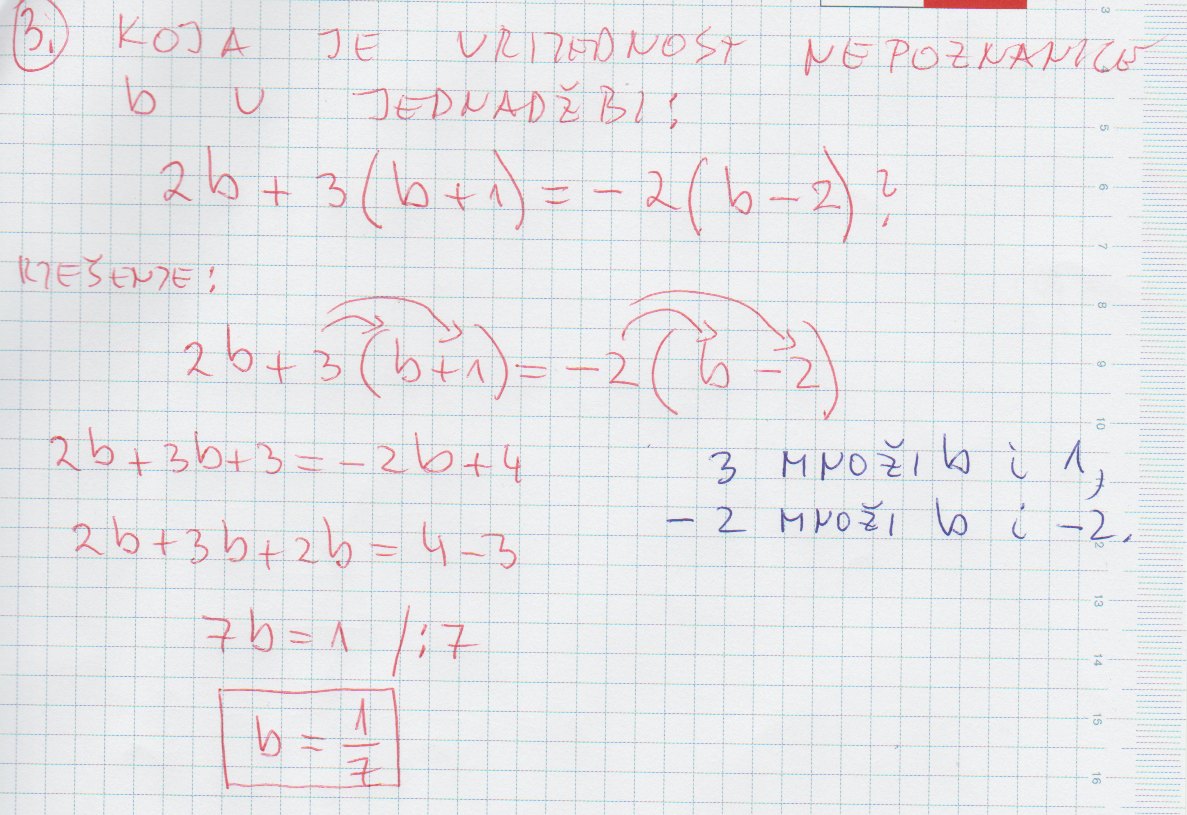 3. KOJA JE VRIJEDNOST NEPOZNANICE
b U JEDNADŽBI:
2b + 3(b+1) = -2(b-2)?
RJEŠENJE:
2b + 3(b+1) = -2(b-2)
2b+3b+3=-2b+4
3 MNOŽI b i 1,
2b+3b+2b=4-3
-2 MNOŽI b i -2.
7b=1 /:7
b = 1/7
3
5
6
7
8
9
10
12
13
14
15
16